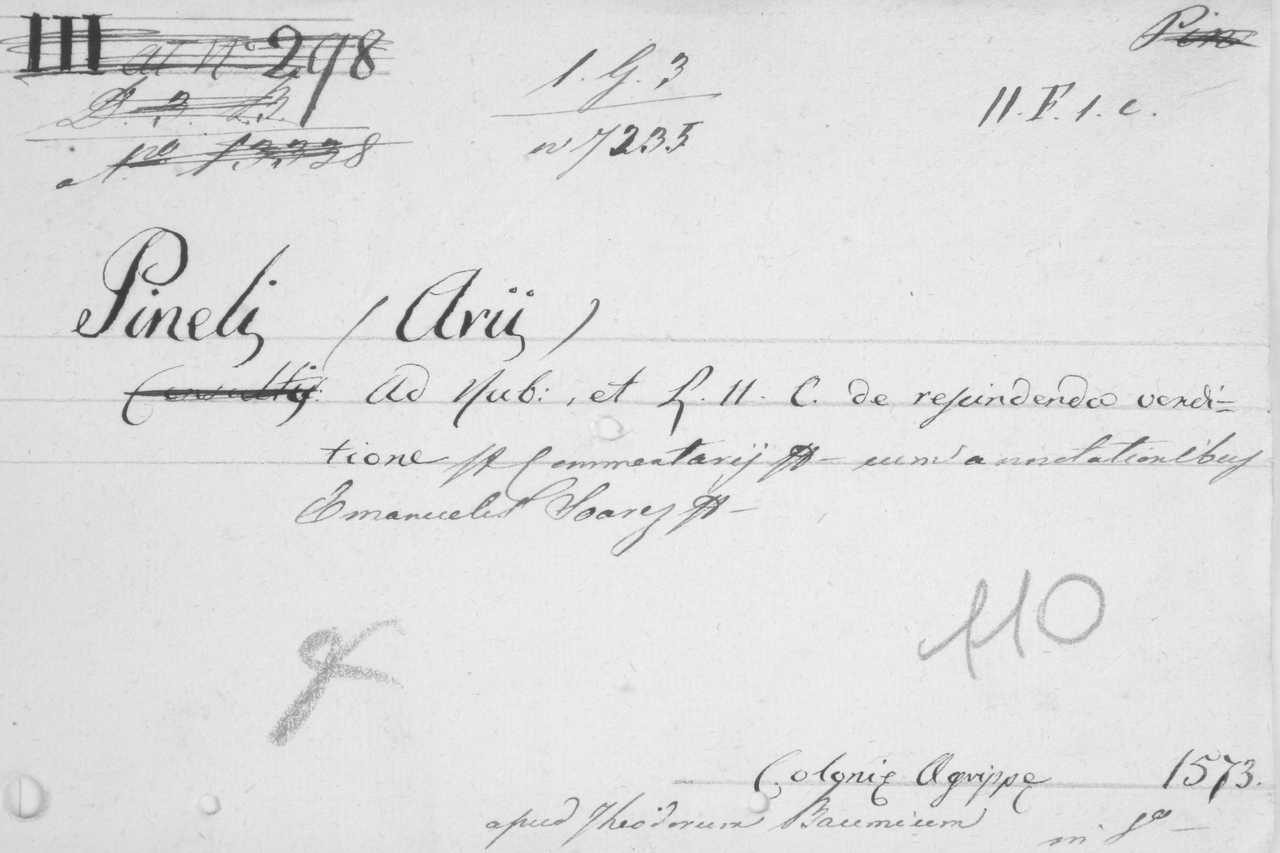 III al No 298
D. 3. L.
No 13.338
1. G. 3
n 7235
Pin
II. F. 1. c.
Pineli (Arii)
Consulti: Ad Rub: , et L. II. C. de rescindenda vendi=
tione Commentarij cum annotationibus
Emanuelis Soarez
110
Colonię Agrippę 1573.
apud Theodorum Baumium in 8o